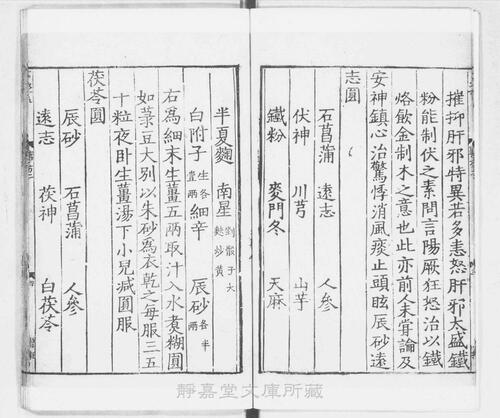 摧抑肝邪特異若多恚怒肝邪太盛鐵
粉能制伏之素問言陽厥狂怒治以鐵
烙飲金制木之意也此亦前人未甞論及
安神鎮心治驚悸消風痰止頭眩辰砂遠
志圓
石菖蒲 遠志 人參
伏神 川芎 山芋
鐵粉 麥門冬 天麻
半夏麴 南星剉骰子大麩炒黃
白附子生各壹兩 細辛 辰砂各半兩
右爲細末生薑五兩取汁入水煑糊圓
如菉豆大別以朱砂爲衣乾之每服三五
十粒夜卧生薑湯下小兒減圓服
茯苓圓
辰砂 石菖蒲 人參
遠志 茯神 白茯苓
靜嘉堂文庫所藏